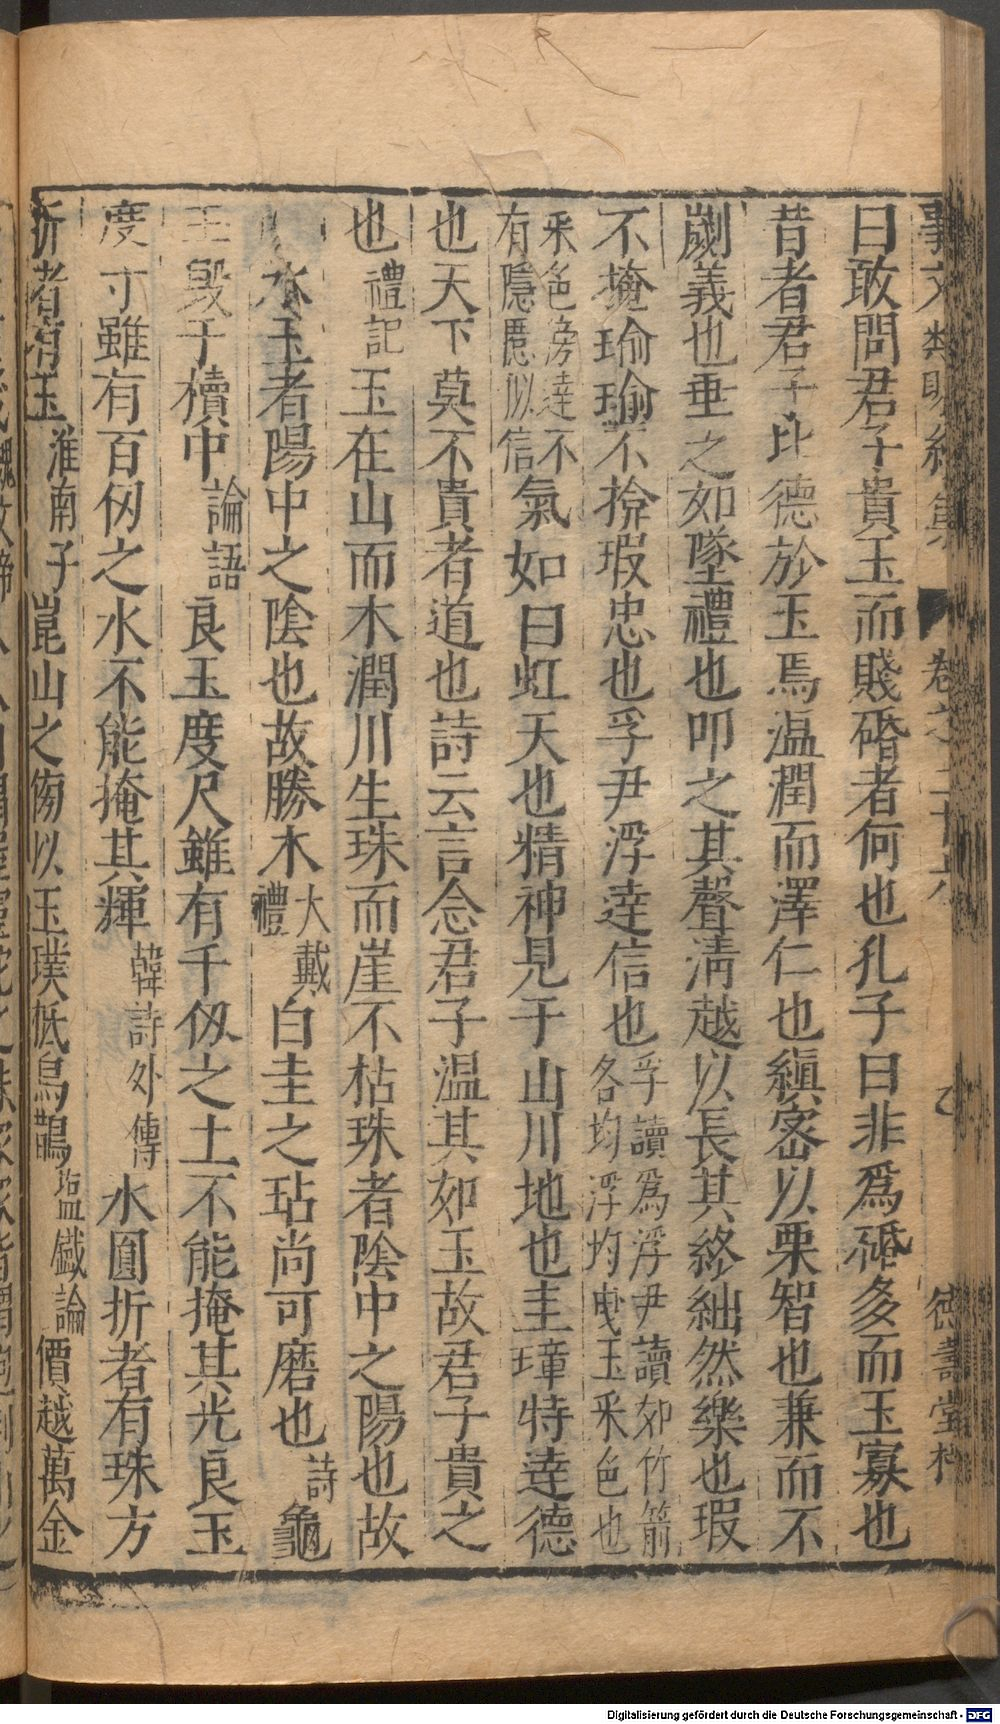 曰敢問君子貴玉而賤碈者何也孔子曰非爲碈多而玉寡也
昔者君子比德於玉焉温潤而澤仁也縝密以栗智也兼而不
劌義也垂之如墜禮也叩之其聲清越以長其終絀然樂也瑕
不掩瑜瑜不揜瑕忠也孚尹浮逹信也孚讀爲浮尹讀如竹箭各均浮均曵玉釆色也
釆色旁逹不有隱匿似信氣如白虹天也精神見于山川地也圭璋特逹德
也天下莫不貴者道也詩云言念君子温其如玉故君子貴之
也禮記玉在山而木潤川生珠而崖不枯珠者陰中之陽也故
水玉者陽中之陰也故勝木大戴禮白圭之玷尚可磨也詩龜
玉毁于櫝中論語良玉度尺雖有千仭之土不能掩其光良玉
度寸雖有百仭之水不能掩其輝韓詩外傳水圓折者有珠方
折者有玉淮南子崑山之傍以玉璞抵烏鵲塩鐵論價越萬金
卷之二十六
德壽堂梓
Digitalisierung gefördert durch die Deutsche Forschungsgemeinschaft - DFG